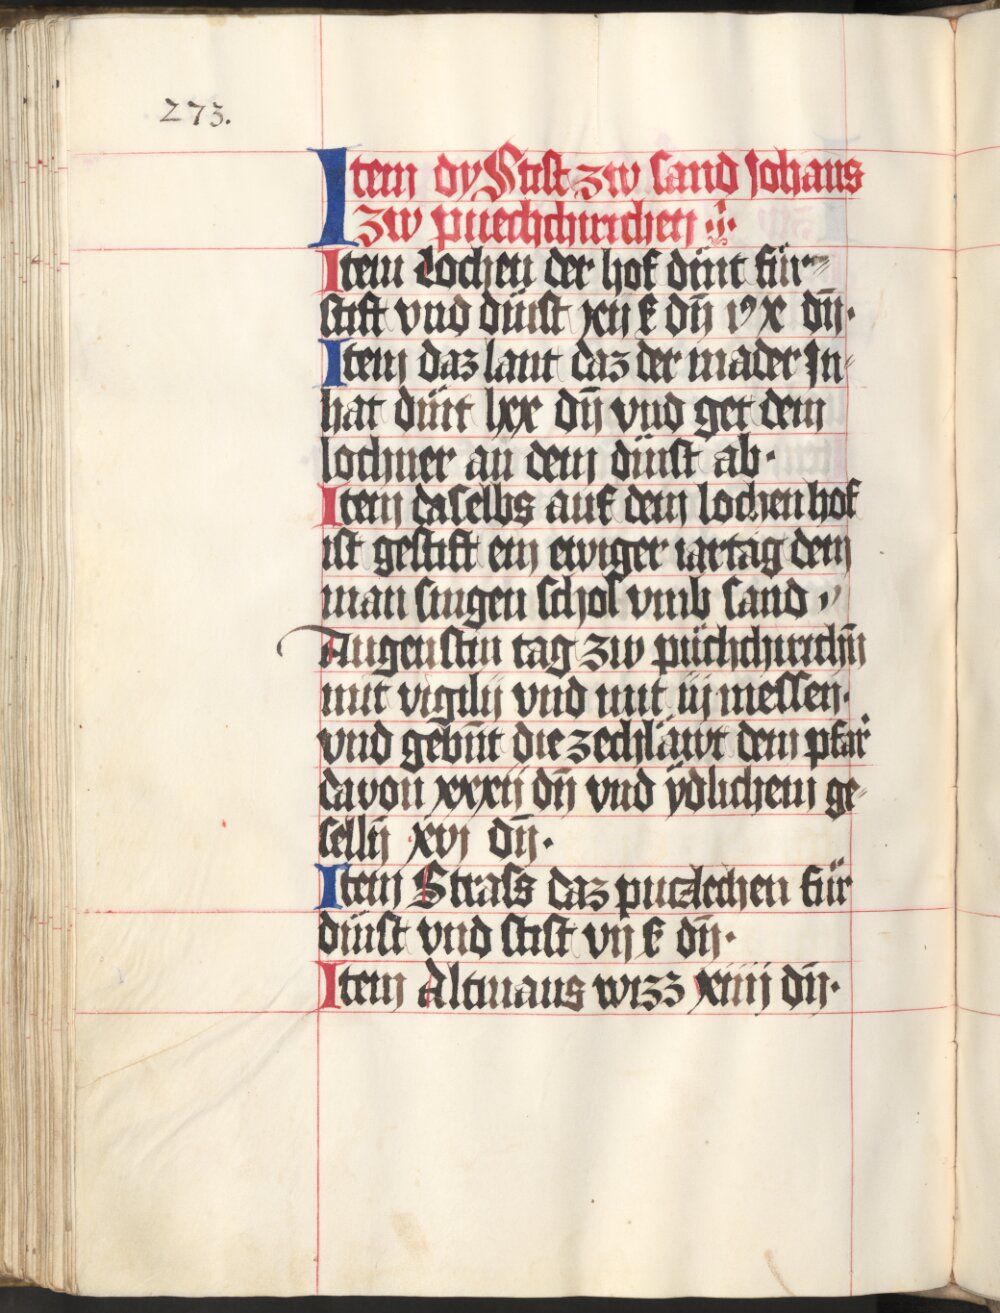 273.
Item dy Stift zw sand Johans
zw puechchirichen
Item Lochen der hof dint für
stift vnd dinst xii ß dn̄ vnd x dn̄.
Item daz lant daz der mader In
hat dint lxx dn̄ vnd get dem
lochner an dem dinst ab.
Item daselbs auf dem lochenhof
ist gestift ein ewiger iartag dem
man singen schol vmb sand
Augenstin tag zw püchchirichn̄
mit vigilij vnd mit iij messen.
vnd gebn̄t die zechläwt dem pfar
davon xxxii dn̄ vnd ydlichem ge
selln̄ xvi dn̄.
Item Strass daz puczlechen für
dinst vnd stift vii ß dn̄.
Item Altmans wizz xiiii dn̄.